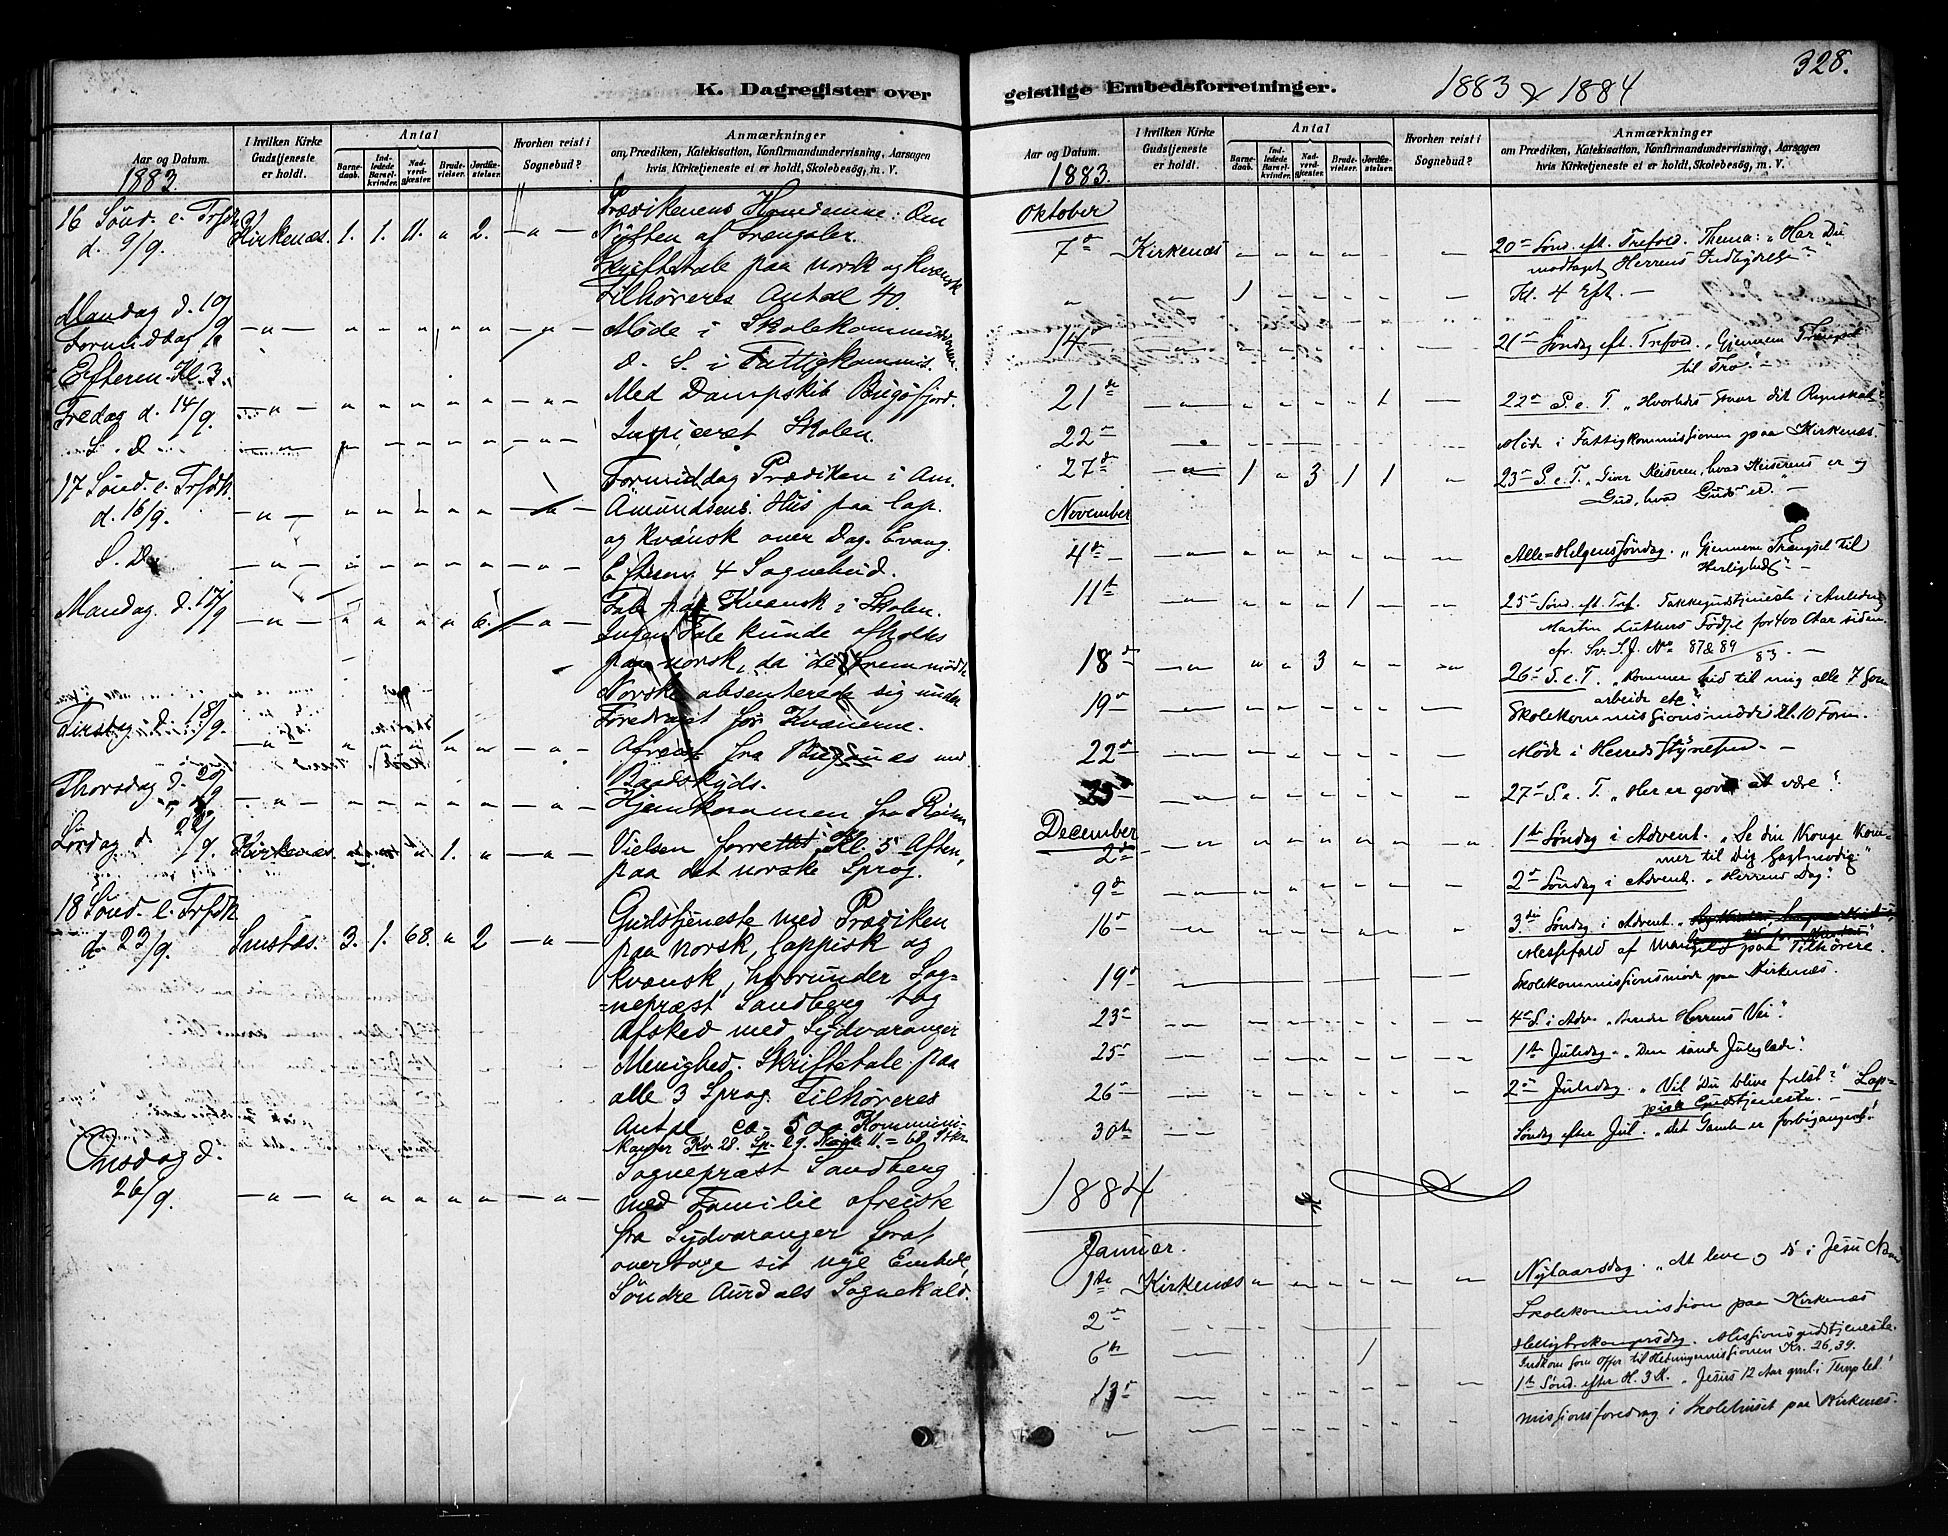 328.
K. Dagregister over geistlige Embedsforretninger.
1883 & 1884
Aar og Datum.
I hvilken Kirke Gudstjeneste er holdt.
Antal
Barnedaab.
Indledede Barselkvinder.
Nadverdgjester.
Brudevielser.
Jordfæstelser.
Hvorhen reist i Sognebud?
Anmærkninger
om Prædiken, Katekisation, Konfirmandundervisning, Aarsagen
hvis Kirketjeneste ei er holdt, Skolebesøg, m. V.
1883.
16 Sönd. e. Trfdh
d. 9/9. Kirkenæs. 1. 1. 11. " 2. — " —
Prædikenens Hovedemne: Om
Nÿtten af Trængsler.
Skriftetale paa norsk og kvænsk
Tilhøreres Antal 40.
Mandag d. 10/9
Formiddag
Møde i Skolekommissionen
Efterm. Kl. 3.
d. S. i Fattigkommis.
Fredag d. 14/9.
Med Dampskib Bugöfjord.
S. D
Inspiceret Skolen.
17 Sönd. e. Trfdh.
d. 16/9.
Formiddag Prædiken i Am.
Amundsens Hus paa lap.
og kvænsk over Dag. Evang.
S. D.
Efterm 4 Sognebud.
Mandag. d. 17/9 6.
Tale paa Kvænsk i Skolen.
Ingen Tale kunde afholdes
paa norsk, da de fremmødte
Norske absenterede sig under
Foredraget for Kvænerne.
Tirsdag d. 18/9.
Afreist fra Bugönæs med
Baadskyds.
Thorsdag d. 20/9
Hjemkommen fra Reisen
Lørdag d. 22/9. Kirkenæs. 1. — " —
Vielsen forrettet Kl. 5 Aften,
paa det norske Sprog.
18 Sönd. e. Trfdh
d. 23/9. 3. 1. 68. " 2 — " —
Gudstjeneste med Prædiken
paa norsk, lappisk og
kvænsk, hvorunder Sog-
=nepræst Sandberg tog
Afsked med Sydvaranger
Menighed. Skriftetale paa
alle 3 Sprog. Tilhøreres
Antal ca. 500 Kommuni-
kanter Kv. 28. Lp. 29. Norske 11 = 68
Onsdag d.
26/9.
Sognepræst Sandberg
med Familie afreiste
fra Sydvaranger forat
overtage sit nye Embede,
Söndre Aurdals Sognekald.
Aar og Datum.
I hvilken Kirke Gudstjeneste er holdt.
Antal
Barnedaab.
Indledede Barselkvinder.
Nadverdgjester.
Brudevielser.
Jordfæstelser.
Hvorhen reist i Sognebud?
Anmærkninger
om Prædiken, Katekisation, Konfirmandundervisning, Aarsagen
hvis Kirketjeneste ei er holdt, Skolebesøg, m. V.
1883.
Oktober
7de Kirkenæs
20de Sönd. eft. Trefold. Thema: "Har Du
modtaget Herrens Indbydelse?"
1
Kl. 4 Eft. —
14de
21de Søndag eft. Trefold. "Gjennem Trængsel
til Tro". —
21de 1
22de S. e. T. "Hvorledes staar dit Regnskab?"
22de
Møde i Fattigkommissionen paa Kirkenæs.
27de 1 " 3 1 1
23de S. e. T. "Giver Keiseren, hvad Keiserens er og
Gud, hvad Guds er." —
November
4de
Alle=Helgenssøndag. "Gjennem Trængsel til
Herlighed". —
11te 1
25de Sönd. eft. Tref. Takkegudstjeneste i Anledning
Martin Luthers Fødsel for 400 Aar siden.
cfr. Sv. T.J. No 87 & 89/83. —
18de 3
26de S. e. T. "Kommer hid til mig alle I som
arbeide etc"
19de
Skolekommissionsmøde Kl. 10 Form.
22de
Møde i Herredsstyrelsen. —
27de S. e. T. "Her er godt at være"
December
2de
1ste Søndag i Advent. "Se din Konge Kom-
mer til Dig sagtmodig"
9de
2de Søndag i Advent. "Herrens Dag".
16de
3die Søndag i Advent.
Messefald af Mangel paa Tilhørere.
19de
Skolekommissionsmøde paa Kirkenæs.
23de
4de S. i Adv. "Bereder Herrens Vei".
25de
1ste Juledag. "Den sande Juleglæde".
26de
2de Juledag. "Vil Du blive frelst?" Lap-
pisk Gudstjeneste. —
30te
Søndag efter Jul. "Det Gamle er forbigangent".
1884
Januar.
1ste Kirkenæs
Nytaarsdag. "At leve og dø i Jesu Navn
2de
Skolekommission paa Kirkenæs
6te 1
Helligtrekongersdag. Missionsgudstjeneste.
Indkom som Offer til Hedningemissionen Kr. 26,39.
13de
1ste Sönd. efter H. 3 K. "Jesus 12 Aar gml. i Templet."
"
Missionsforedrag i Skolehuset paa Kirkenæs.